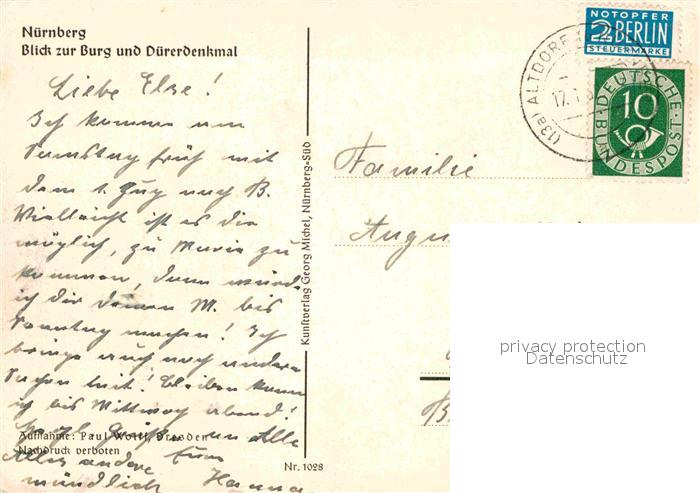 Nürnberg
Blick zur Burg und Dürerdenkmal
Liebe Else!
Ich komme am
Samstag früh mit
dem 1. Zug nach B.
Vielleicht ist es dir
möglich, zu Maria zu
kommen, dann würd
ich dir deinen M. bis
Sonntag machen! Ich
bringe auch noch andere
Sachen mit! Bleiben kann
ich bis Mittwoch abend!
Herzl. Grüße an Alle
Eure
Alles andere
mündlich Hanna
Aufnahme: Paul Wolff, Dresden
Nachdruck verboten
Nr. 1028
Kunstverlag Georg Michel, Nürnberg-Süd
NOTOPFER
2 BERLIN
STEUERMARKE
(13a) ALTDORF
17.1
DEUTSCHE
10
BUNDESPOST
Familie
Augu
B
privacy protection
Datenschutz